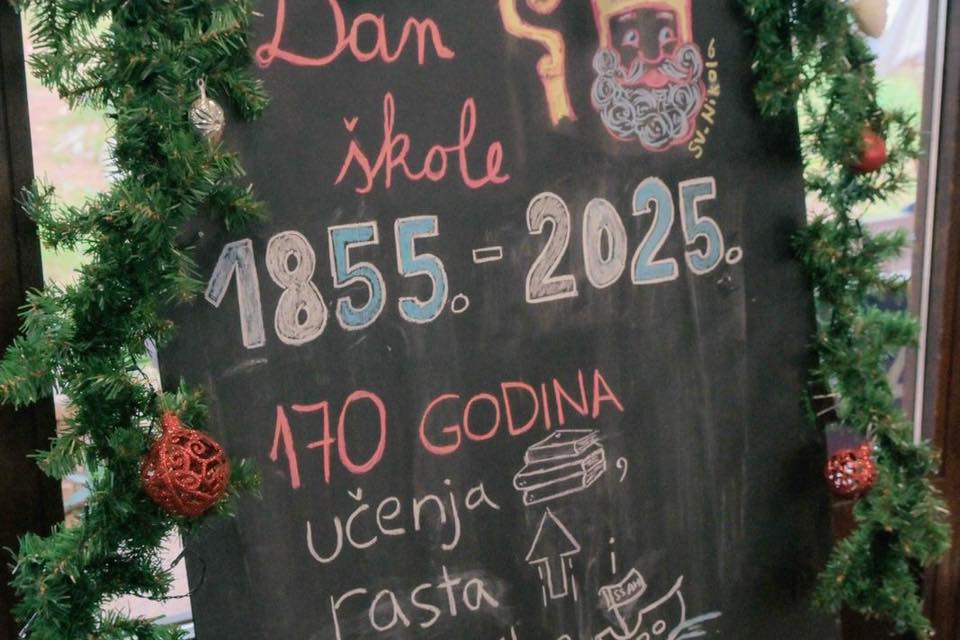 Dan
škole
Sv. Nikola
1855. - 2025.
170 GODINA
učenja ,
rasta i